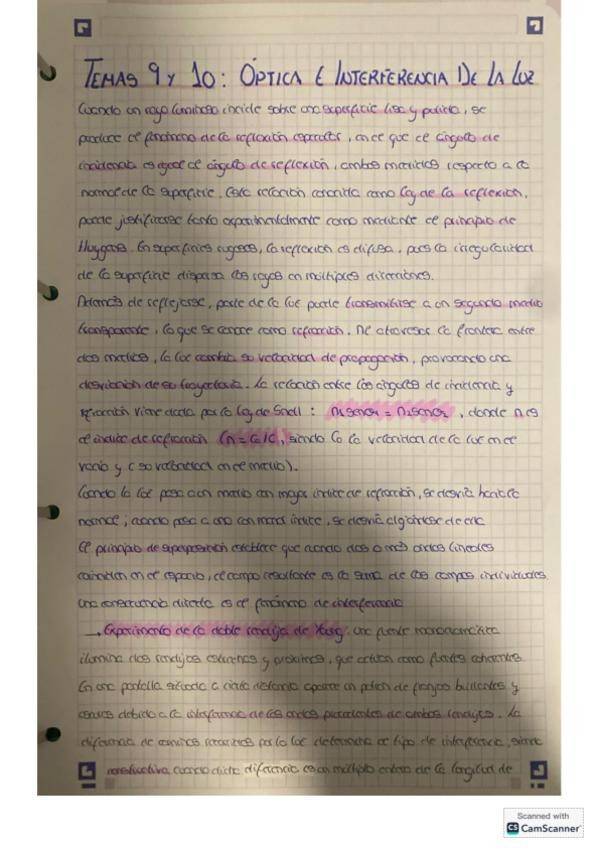 TEMAS 9 Y 10: ÓPTICA E INTERFERENCIA DE LA LUZ
Cuando un rayo luminoso incide sobre una superficie lisa y pulida, se
produce el fenómeno de la reflexión especular, en el que el ángulo de
incidencia es igual al ángulo de reflexión, ambos medidos respecto a la
normal de la superficie. Esta relación conocida como ley de la reflexión,
puede justificarse tanto experimentalmente como mediante el principio de
Huygens. En superficies rugosas, la reflexión es difusa, pues la irregularidad
de la superficie dispersa los rayos en múltiples direcciones.
Además de reflejarse, parte de la luz puede transmitirse a un segundo medio
transparente, lo que se conoce como refracción. Al atravesar la frontera entre
dos medios, la luz cambia su velocidad de propagación, provocando una
desviación de su trayectoria. La relación entre los ángulos de incidencia y
refracción viene dada por la ley de Snell: , donde n es
el índice de refracción , siendo la velocidad de la luz en el
vacío y c su velocidad en el medio).
Cuando la luz pasa a un medio con mayor índice de refracción, se desvía hacia la
normal; cuando pasa a uno con menor índice, se desvía alejándose de ella
El principio de superposición establece que cuando dos o más ondas lineales
coinciden en el espacio, el campo resultante es la suma de los campos individuales.
Una consecuencia directa es el fenómeno de interferencia
→ Experimento de la doble rendija de Young: una fuente monocromática
ilumina dos rendijas estrechas y próximas, que actúan como fuentes coherentes.
En una pantalla situada a cierta distancia aparece un patrón de franjas brillantes y
oscuras debido a la interferencia de las ondas procedentes de ambas rendijas. La
diferencia de caminos recorridos por la luz determina el tipo de interferencia, siendo
constructiva cuando dicha diferencia es un múltiplo entero de la longitud de
Scanned with
CS CamScanner